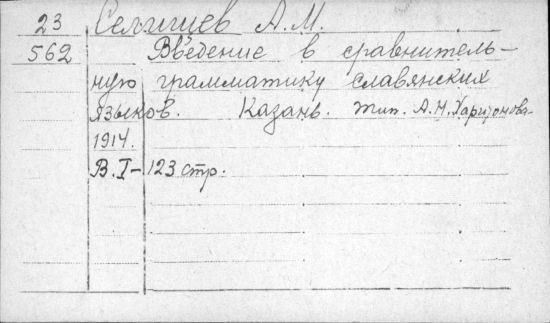 23 Селищев А.М.
562 Введение в сравнитель-
ную грамматику славянских
языков. Казань. тип. А.Н. Харитонова
1914.
В. I – 123 стр.